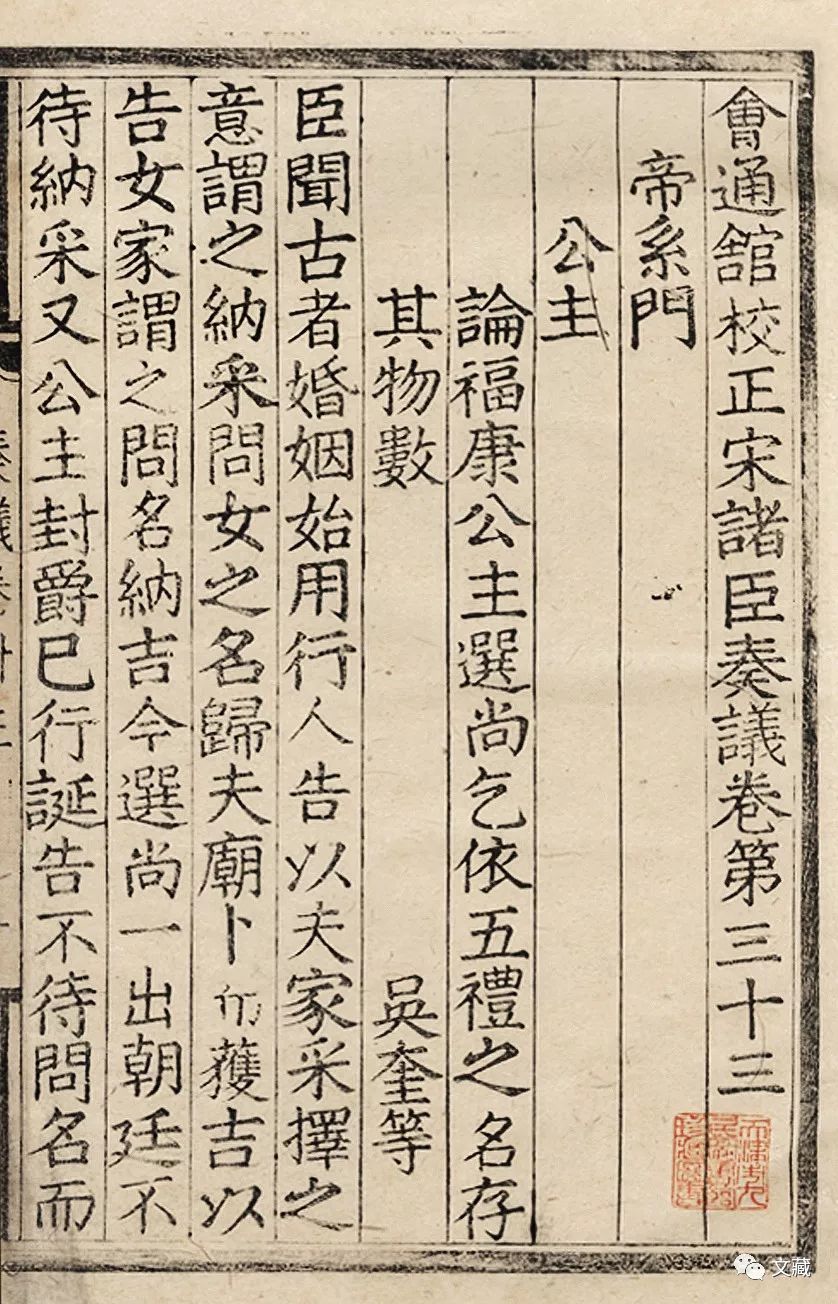 會通舘校正宋諸臣奏議卷第三十三
帝系門
公主
論福康公主選尚乞依五禮之名存
其物數 吳奎等
臣聞古者婚姻始用行人告以夫家采擇之
意謂之納采問女之名歸夫廟卜而獲吉以
告女家謂之問名納吉今選尚一出朝廷不
待納采又公主封爵已行誕告不待問名而
文藏